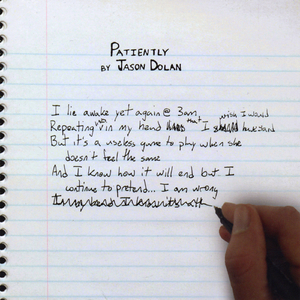 PATIENTLY
BY JASON DOLAN
I lie awake yet again @ 3am,
Repeating in my head that I wish I would have said
But it's a useless game to play when she
doesn't feel the same
And I know how it will end but I
continue to pretend... I am wrong